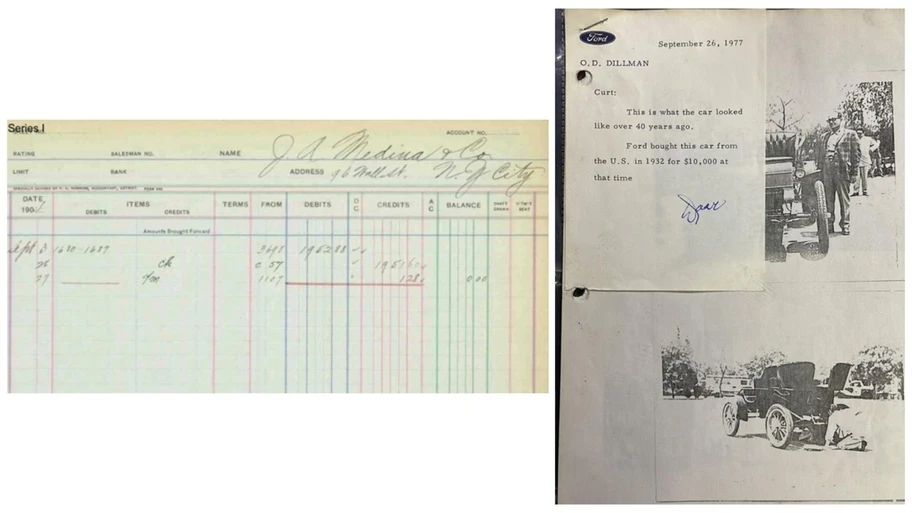 Series I
ACCOUNT NO.
RATING SALESMAN NO. NAME J A Medina & Co
LIMIT BANK ADDRESS 96 Wall St. N.Y City
DATE ITEMS TERMS FROM DEBITS D C CREDITS A C BALANCE
190 DEBITS CREDITS
Amounts Brought Forward
Sept 3 1680-1687 3698 195288
26 ck C 57
27 1107 128 000
Ford
September 26, 1977
O.D. DILLMAN
Curt:
This is what the car looked
like over 40 years ago.
Ford bought this car from
the U.S. in 1932 for $10,000 at
that time